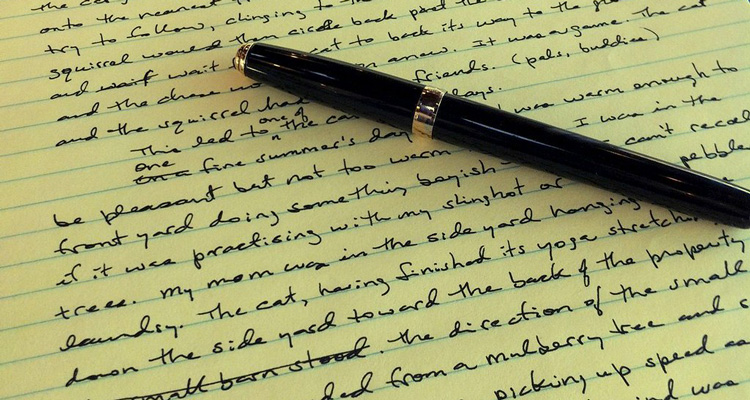 the ca
onto the nearest
try to follow, clinging to the
squirrel would then circle back past the
and waif wait cat to back its way to the gro
and the chase wo anew. It was a game. The cat
and the squirrel had friends. (pals, buddies)
This led to one of the ca days.
one
one fine summer's day was warm enough to
be pleasant but not too warm I was in the
front yard doing something boyish can't recal
if it was practising with my slingshot or pebble
trees. My mom was in the side yard hanging
laundry. The cat, having finished its yoga stretch
down the side yard toward the back of the property
small barn stood. the direction of the small
ded from a mulberry tree and s
picking up speed
ind was